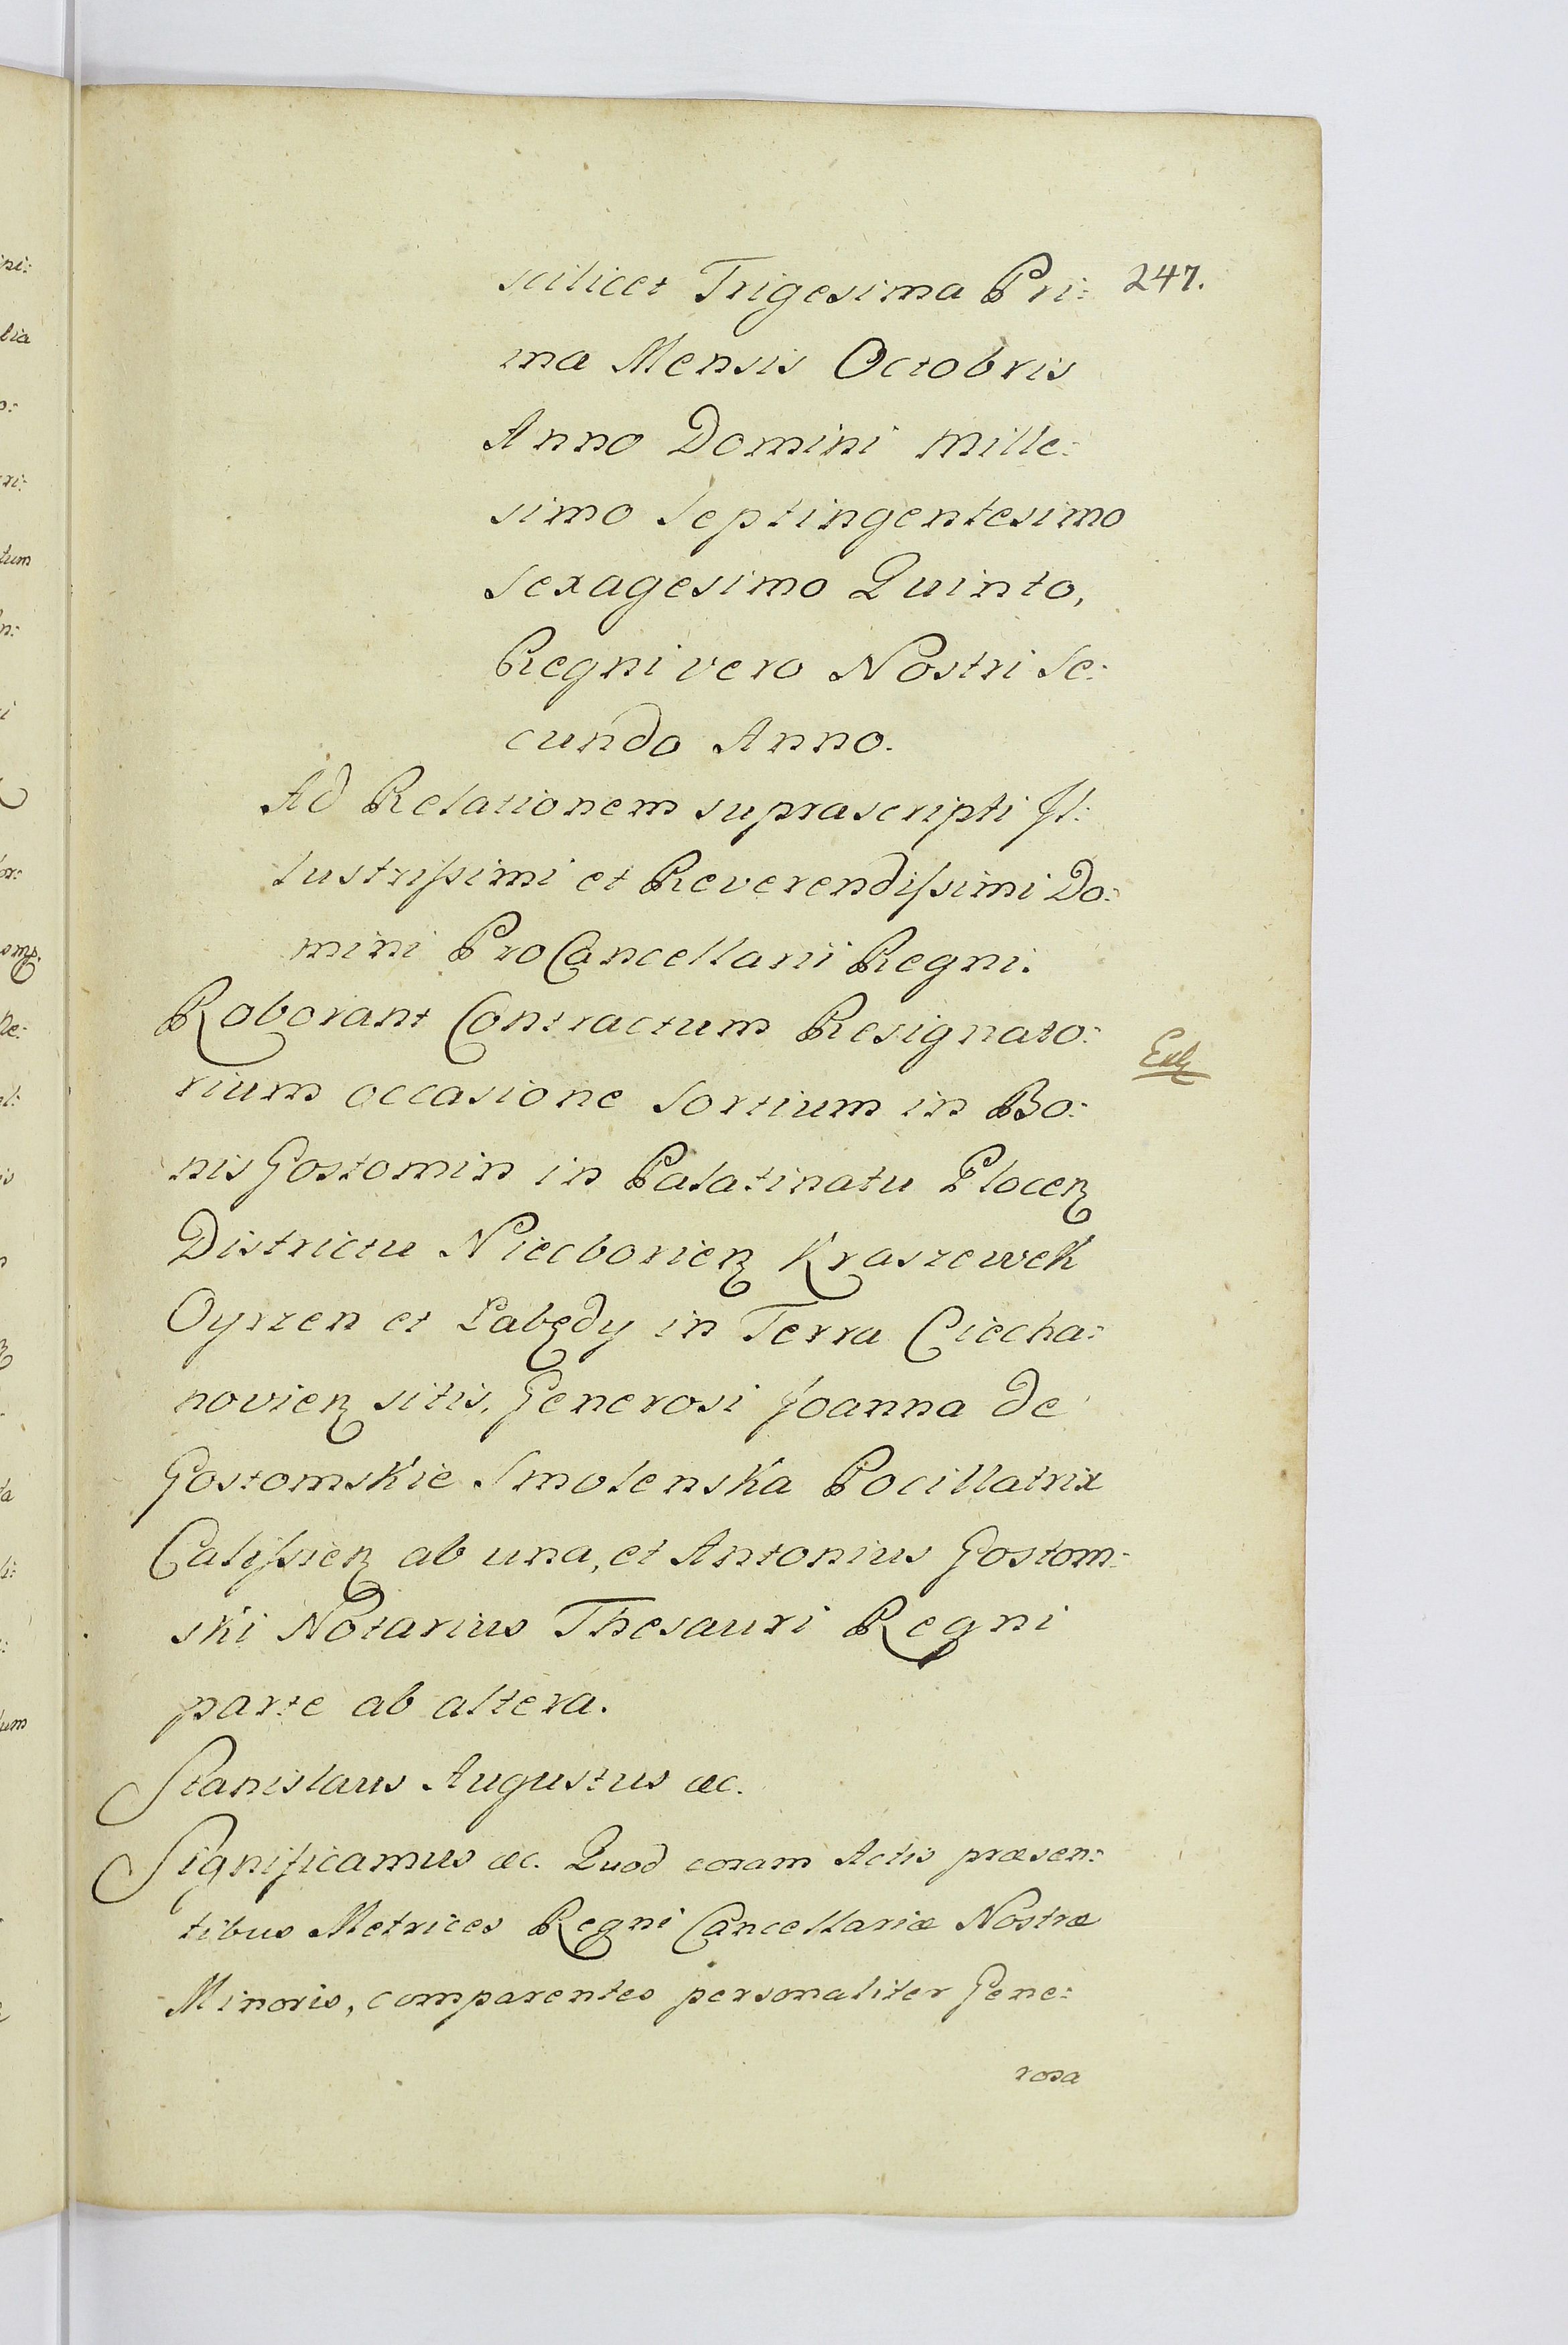 247.
scilicet Trigesima Pri:
ma Mensis Octobris
Anno Domini Mille:
simo Septingentesimo
Sexagesimo Quinto,
Regni vero Nostri Se:
cundo Anno.
Ad Relationem suprascripti Il:
lustrissimi et Reverendissimi Do:
mini ProCancellarii Regni.
Roborant Contractum Resignato:
rium occasione Sortium in Bo:
nis Gostomin in Palatinatu Plocen
Districtu Niedborien Kraszewek
Oyrzen et Łabędy in Terra Ciecha:
novien sitis, Generosi Joanna de
Gostomskie Smolenska Pocillatrix
Calissien ab una, et Antonius Gostom:
ski Notarius Thesauri Regni
parte ab altera.
Stanislaus Augustus &c.
Significamus &c. Quod coram Actis præsen:
tibus Metrices Regni Cancellariæ Nostræ
Minoris, comparentes personaliter Gene:
rosa